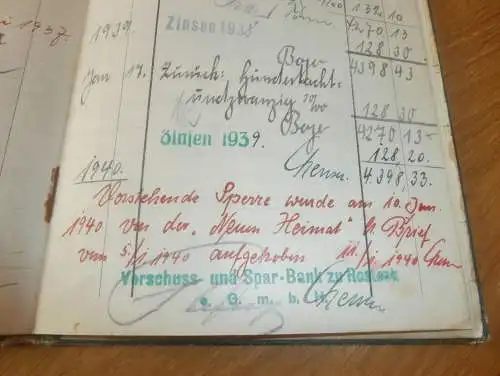 i 1937.
139. 10
Zinsen 1938 4270 13
1939. Boje 128 30
4398 43
Jan 17. Zurück: Hundertacht-
undzwanzig 30/00 128 30
Boje 4270 13
Zinsen 1939. 128, 20.
1940. 4.398, 33.
Vorstehende Sperre wurde am 10. Jan.
1940 von der "Neuen Heimat" lt Brief
vom 5/1 1940 aufgehoben 11./1. 1940
Vorschuss- und Spar-Bank zu Rostock
e. G. m. b. H.